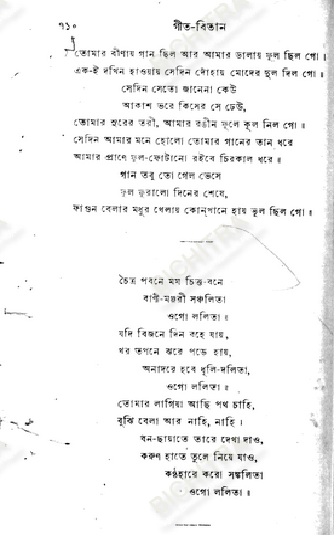 ৭১০
গীত-বিতান
তোমার বীণায় গান ছিল আর আমার ডালায় ফুল ছিল গো।
এক-ই দখিন হাওয়ায় সেদিন দোঁহায় মোদের দুল দিল গো।
সেদিন সেতো জানেনা কেউ
আকাশ ভরে কিসের সে ঢেউ,
তোমার সুরের তরী, আমার রঙীন ফুলে কূল নিল গো॥
সেদিন আমার মনে হোলো তোমার গানের তান ধরে
আমার প্রাণে ফুল-ফোটানো রইবে চিরকাল ধরে॥
গান তবু তো গেল ভেসে
ফুল ফুরালো দিনের শেষে,
ফাগুন বেলার মধুর খেলায় কোন্‌খানে হায় ভুল ছিল গো॥
চৈত্র পবনে মম চিত্ত-বনে
বাণী-মঞ্জরী সঞ্চলিতা
ওগো ললিতা॥
যদি বিজনে দিন বহে যায়,
খর তপনে ঝরে পড়ে হায়,
অনাদরে হবে ধূলি-দলিতা,
ওগো ললিতা॥
তোমার লাগিয়া আছি পথ চাহি,
বুঝি বেলা আর নাহি, নাহি।
বন-ছায়াতে তারে দেখা দাও,
করুণ হাতে তুলে নিয়ে যাও,
কণ্ঠহারে করো সঙ্কলিতা
ওগো ললিতা॥